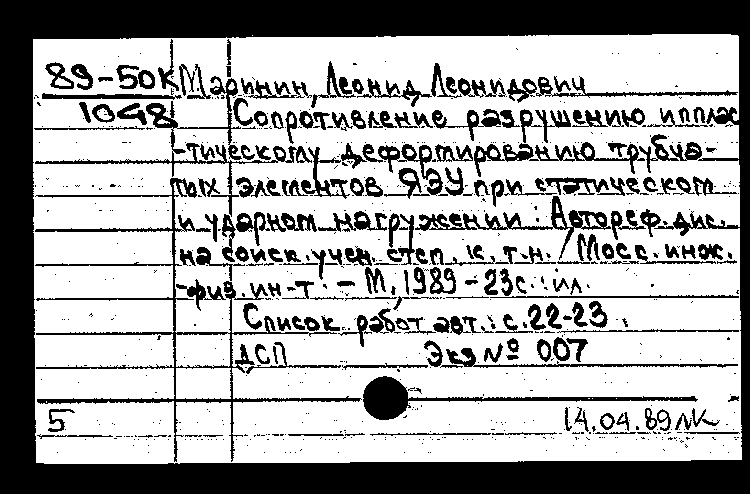 89-50К Маринин, Леонид Леонидович
1048 Сопротивление разрушению и плас
-тическому деформированию трубча-
тых элементов ЯЭУ при статическом
и ударном нагружении : Автореф. дис.
на соиск. учен. степ. к. т. н. / Моск. инж.
-физ. ин-т. - М, 1989 - 23с. : ил.
Список работ авт.: с. 22-23.
ДСП Экз № 007
5 14.04.89